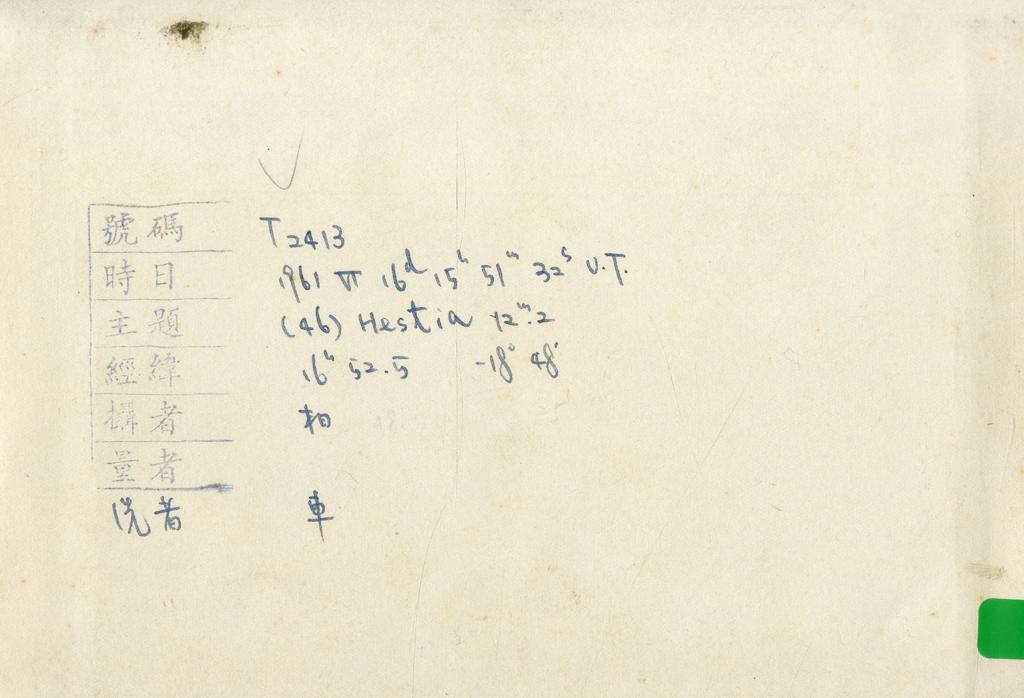 號碼 T2413
時日 1961 VI 16ᵈ 15ʰ 51ᵐ 32ˢ U.T.
主題 (46) Hestia 12ᵐ.2
經緯 16ʰ 52.5 -18° 48'
攝者 柏
量者
洗者 車